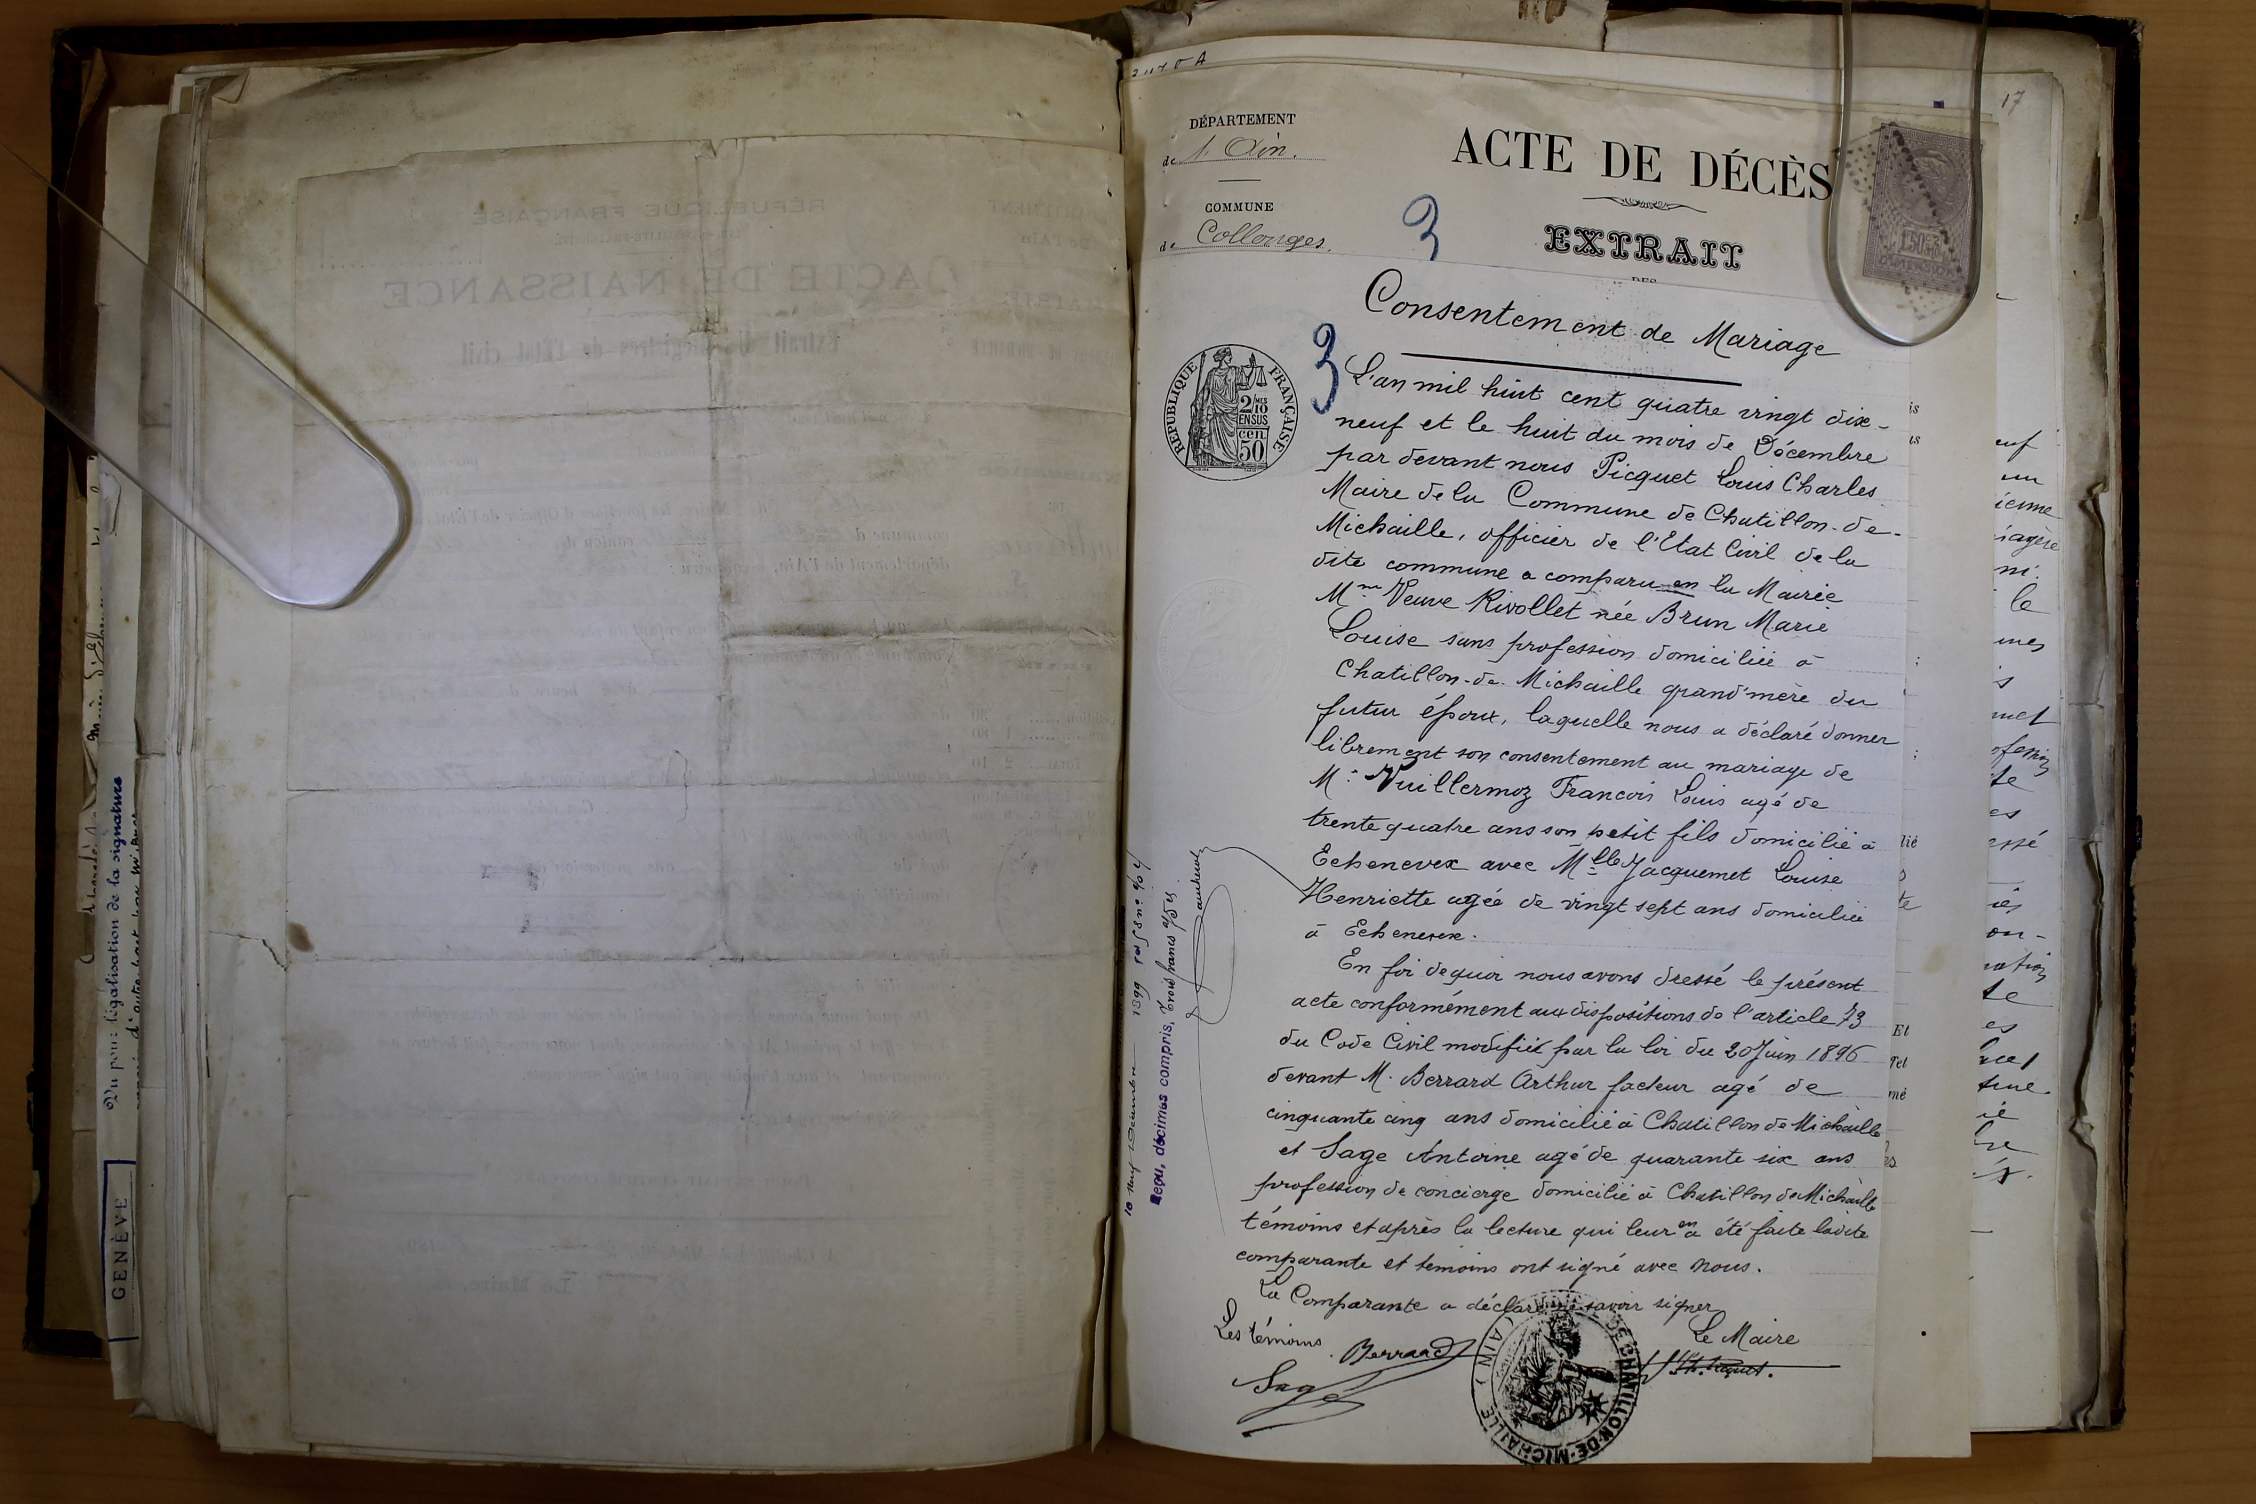 17
DÉPARTEMENT
de l'Ain.
COMMUNE
de Collonges.
ACTE DE DÉCÈS
3
EXTRAIT
DES
Consentement de Mariage
3
RÉPUBLIQUE FRANÇAISE
2/10 MES
EN SUS
50 cen
L'an mil huit cent quatre vingt dix-
neuf et le huit du mois de Décembre
par devant nous Picquet Louis Charles
Maire de la Commune de Chatillon-de-
Michaille, officier de l'Etat Civil de la
dite commune a comparu en la Mairie
Mme Veuve Rivollet née Brun Marie
Louise sans profession domiciliée à
Chatillon-de-Michaille grand'mère du
futur époux, laquelle nous a déclaré donner
librement son consentement au mariage de
Mr Vuillermoz Francois Louis agé de
trente quatre ans son petit fils domicilié à
Echenevex avec Mlle Jacquemet Louise
Henriette agée de vingt sept ans domiciliée
à Echenevex.
En foi de quoi nous avons dressé le présent
acte conformément aux dispositions de l'article 73
du Code Civil modifié par la loi du 20 Juin 1896
devant M. Berrard Arthur facteur agé de
cinquante cinq ans domicilié à Chatillon de Michaille
et Sage Antoine agé de quarante six ans
profession de concierge domicilié à Chatillon de Michaille
témoins et après la lecture qui leur en a été faite la dite
comparante et témoins ont signé avec nous.
La Comparante a déclaré ne savoir signer
Les témoins
Le Maire
Berrard
Sage
CHATILLON-DE-MICHAILLE (AIN)
Reçu, décimes compris, trois francs
Vu pour légalisation de la signature
GENÈVE
RÉPUBLIQUE FRANÇAISE
ACTE DE NAISSANCE
Extrait des Registres de l'État civil